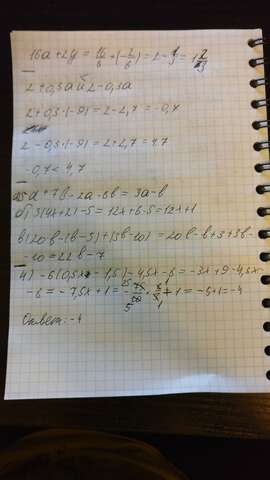 16a + 2y = 16/8 + (-2/6) = 2 - 1/3 = 1 2/3
2 + 0,3a и 2 - 0,3a
2 + 0,3 · (-9) = 2 - 2,7 = -0,7
2 - 0,3 · (-9) = 2 + 2,7 = 4,7
-0,7 < 4,7
а) 5a + 7b - 2a - 8b = 3a - b
б) 3(4x + 2) - 5 = 12x + 6 - 5 = 12x + 1
в) 20b - (b - 3) + (3b - 10) = 20b - b + 3 + 3b -
- 10 = 22b - 7
4) -6(0,5x - 1,5) - 4,5x - 8 = -3x + 9 - 4,5x -
- 8 = -7,5x + 1 = - 75/10 · 2/3 + 1 = -5 + 1 = -4
Ответ: -4